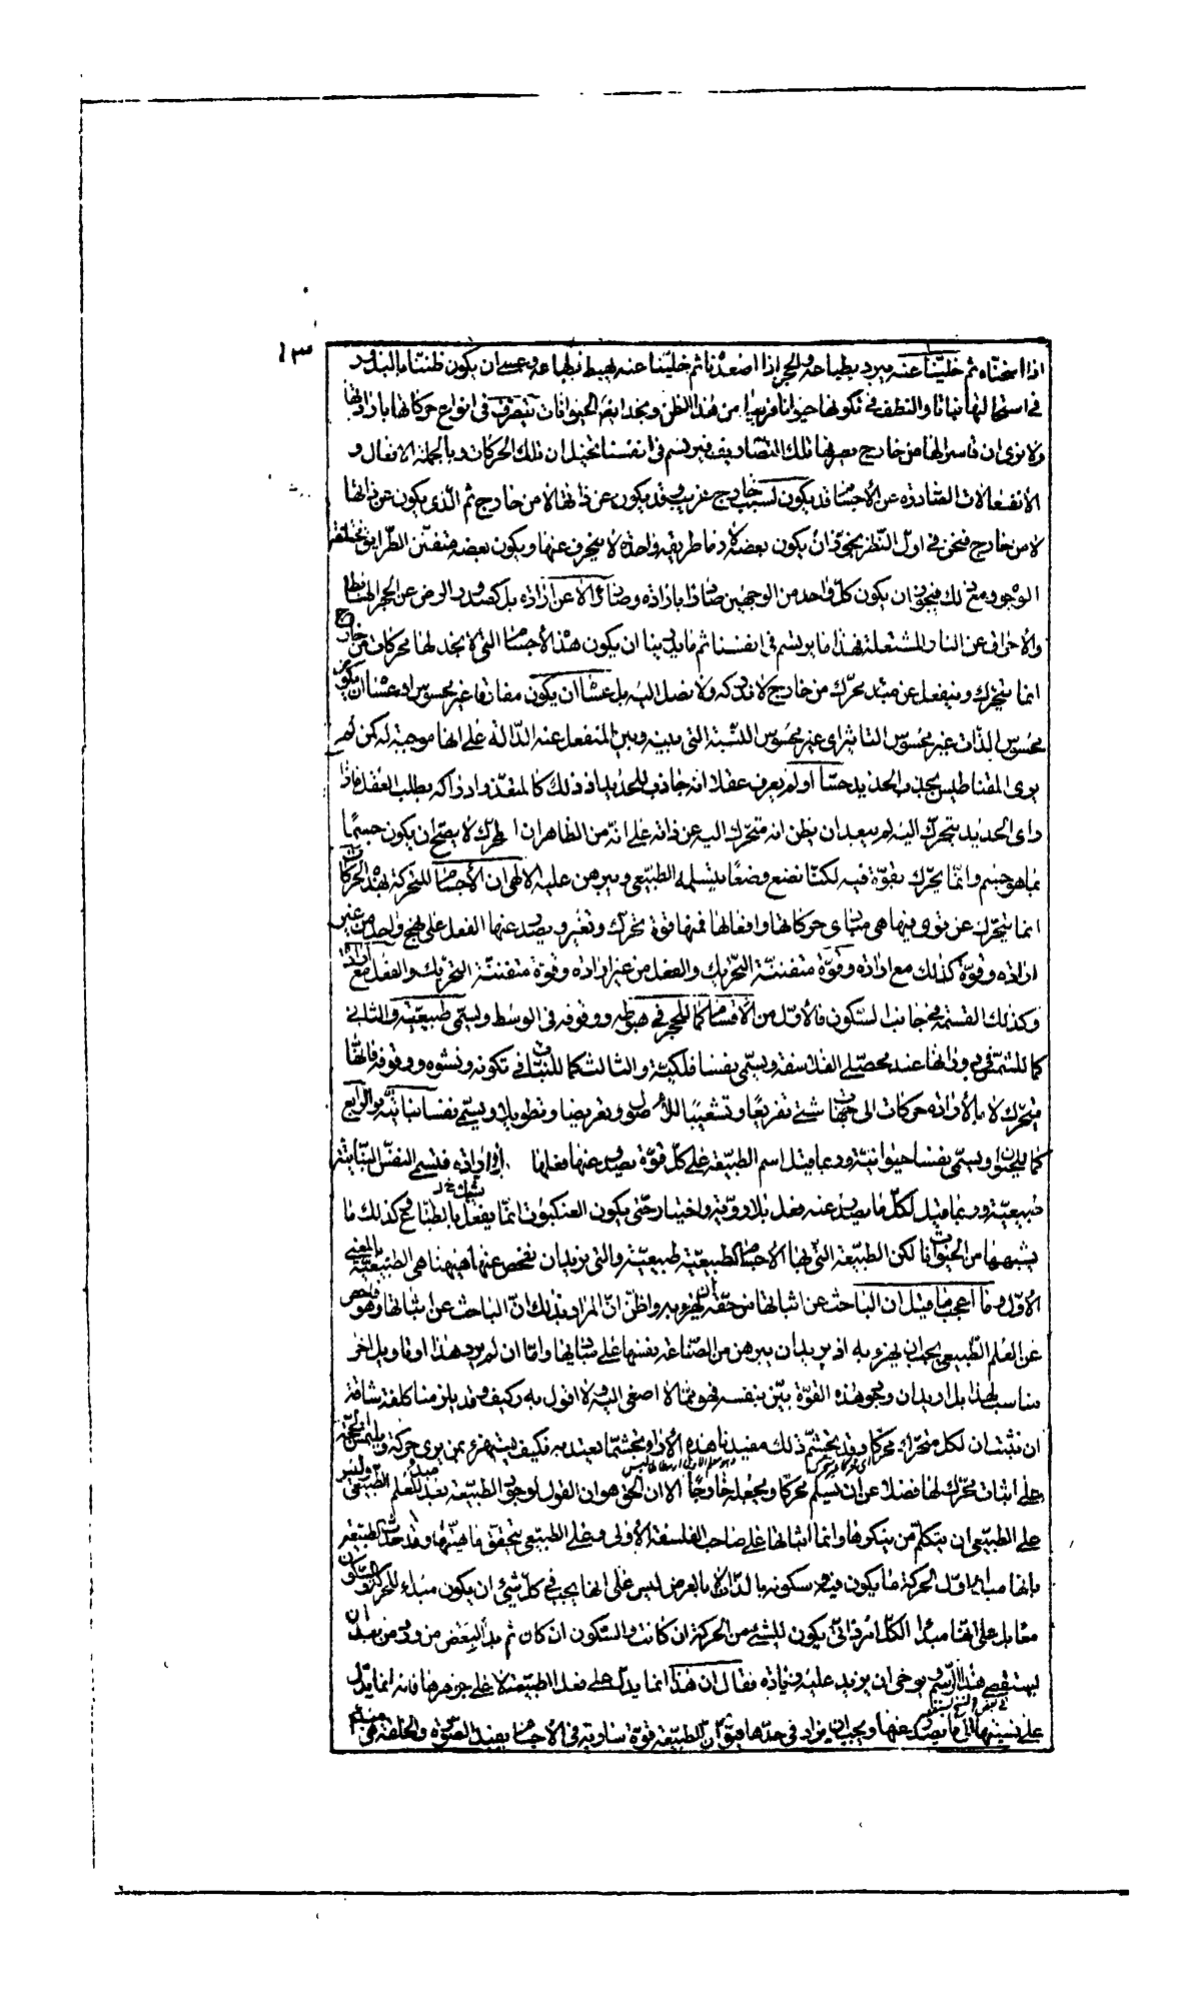 ١٣
اذا اسخناه ثم خلينا عنه يبرد بطباعه والحجر اذا اصعدناه ثم خلينا عنه يهبط بطباعه وعسى ان يكون ظننا بالبذور
فى استحالتها نباتا والنطف فى تكونها حيوانا قريبا من هذا الظن ونجد ايضا الحيوانات تتصرف فى انواع حركاتها بارادتها
ولا نرى ان قاسرا لها من خارج يصرفها تلك التصاريف فيرتسم فى انفسنا تخيل ان تلك الحركات وبالجملة الافعال و
الانفعالات الصادرة عن الاجسام قد يكون لسبب خارج غريب وقد يكون عن ذاتها لا من خارج ثم الذى يكون عن ذاتها
لا من خارج فنحن فى اول النظر نجوز ان يكون بعضه لازما طريقة واحدة لا ينحرف عنها ويكون بعضه متفنن الطرايق مختلف
الوجوه ومع ذلك فيجوز ان يكون كل واحد من الوجهين صادرا بارادة وصادرا لا عن ارادة بل كصدور الرض عن الحجر الهابط
والاحراق عن النار المشتعلة فهذا ما يرتسم فى انفسنا ثم ما يدرينا ان يكون هذه الاجسام التى لا نجد لها محركات من خارج
انما يتحرك وينفعل عن مبدء محرك من خارج لا ندركه ولا نصل اليه بل عساه ان يكون مفارقا غير محسوس او عساه ان يكون
محسوس الذات غير محسوس التاثير اى غير محسوس النسبة التى بينه وبين المنفعل عنه الدالة على انها موجبة له كمن لم
يرى المقناطيس يجذب الحديد حسا او لم يعرف عقلا انه جاذب للحديد اذ ذلك كالمتعذر ادراكه بطلب العقل فاذا
راى الحديد يتحرك اليه لم يبعد ان يظن انه متحرك اليه عن ذاته على انه من الظاهر ان المحرك لا يصح ان يكون جسما
بما هو جسم وانما يحرك بقوة فيه لكنا نضع وضعا يتسلمه الطبيعى ويبرهن عليه الالهى ان الاجسام المتحركة بهذه الحركات
انما يتحرك عن قوى فيها هى مبادى حركاتها وافعالها فمنها قوة تحرك وتغير ويصدر عنها الفعل على نهج واحد من غير
ارادة وقوة كذلك مع ارادة وقوة متفننة التحريك والفعل من غير ارادة وقوة متفننة التحريك والفعل مع ارادة
وكذلك القسمة فى جانب السكون فالاول من الاقسام كما للحجر فى هبوطه ووقوفه فى الوسط ويسمى طبيعية والثانى
كما للشمس فى دورانها عند محصلى الفلاسفة ويسمى نفسا فلكية والثالث كما للنبات فى تكونه ونشوه ووقوفه فانها
متحرك لا بالارادة حركات الى جهات شتى تفريعا وتشعيبا للاصول وتعريضا وتطويلا ويسمى نفسا نباتية والرابع
كما للحيوان ويسمى نفسا حيوانية وربما قيل اسم الطبيعة على كل قوة يصدر عنها فعلها بلا ارادة فتسمى النفس النباتية
طبيعية وربما قيل لكل ما يصدر عنه فعله بلا روية واختيار حتى يكون العنكبوت انما يشبك بالطباع وكذلك ما
يشبهها من الحيوانات لكن الطبيعة التى بها الاجسام الطبيعية طبيعية والتى نريد ان نفحص عنها هيهنا هى الطبيعة بالمعنى
الاول وما اعجب ما قيل ان الباحث عن اثباتها من حقه ان يهزء به واظن ان المراد بذلك ان الباحث عن اثباتها وهو فاحص
عن العلم الطبيعى يجب ان يهزء به اذ يريد ان يبرهن من الصناعة نفسها على مباديها واما ان لم يرد هذا او تاويل اخر
مناسب لهذا بل اريد ان وجود هذه القوة بين بنفسه فهو مما لا اصغى اليه ولا اقول به وكيف وقد يلزمنا كلفة شاقة
ان نثبت ان لكل متحرك محركا وقد تجشم ذلك مفيدنا هذه الاراء وتجشما يعتد به فكيف يستهزء بمن يرى حركة ويلتمس الحجة
على اثبات محرك لها فضلا عن ان يسلم محركا ويجعله خارجا الا ان الحق هو ان القول بوجود الطبيعة مبدء للعلم الطبيعى وليس
على الطبيعى ان يتكلم من ينكرها وانما اثباتها على صاحب الفلسفة الاولى وعلى الطبيعى تحقيق ماهيتها وقد حدت الطبيعة
بانها مبدء اول لحركة ما يكون فيه وسكونه بالذات لا بالعرض ليس على انها يجب فى كل شىء ان يكون مبدء للحركة والسكون
معا بل على انها مبدأ لكل امر ذاتى يكون للشىء من الحركة ان كانت والسكون ان كان ثم بدا لبعض من ورد من بعد ان
يستقصى هذا الرسم وتوخى ان يزيد عليه زيادة فقال ان هذا انما يدل على فعل الطبيعة لا على جوهرها فانه انما يدل
على نسبتها الى ما يصدر عنها ويجب ان يزاد فى حدها فيقال ان الطبيعة قوة سارية فى الاجسام يفيد الصور والخلق هى مبدء